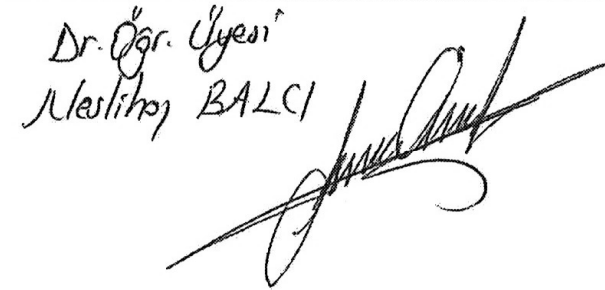 Dr. Öğr. Üyesi
Neslihan BALCI